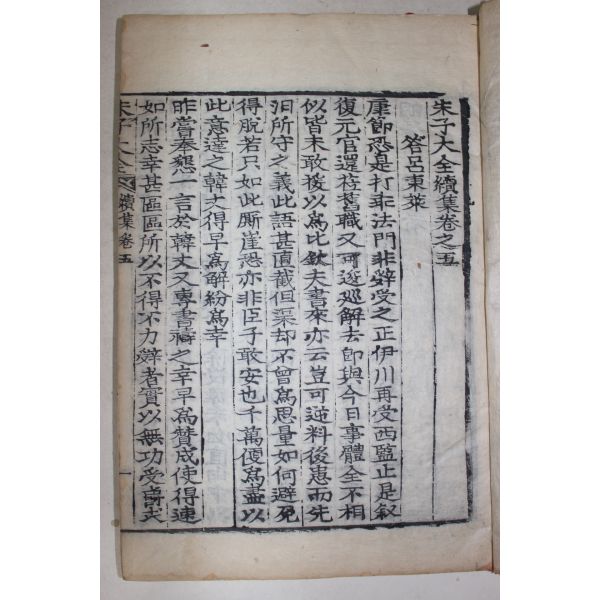 朱子大全續集卷之五
答呂東萊
康節恐是打乖法門非辭受之正伊川再受西監止是叙
復元官還莅舊職又可逡廵解去卽與今日事體全不相
似皆未敢援以爲比欽夫書來亦云豈可逆料後患而先
汨所守之義此語甚直截但渠却不曾爲思量如何避免
得脫若只如此厮崖恐亦非臣子敢安也千萬便爲盡以
此意達之韓丈得早爲解紛爲幸
昨嘗奉懇一言於韓丈又專書禱之幸早爲贊成使得速
如所志幸甚區區所以不得不力辭者實以無功受賞夫
朱子大全 續集卷五 一